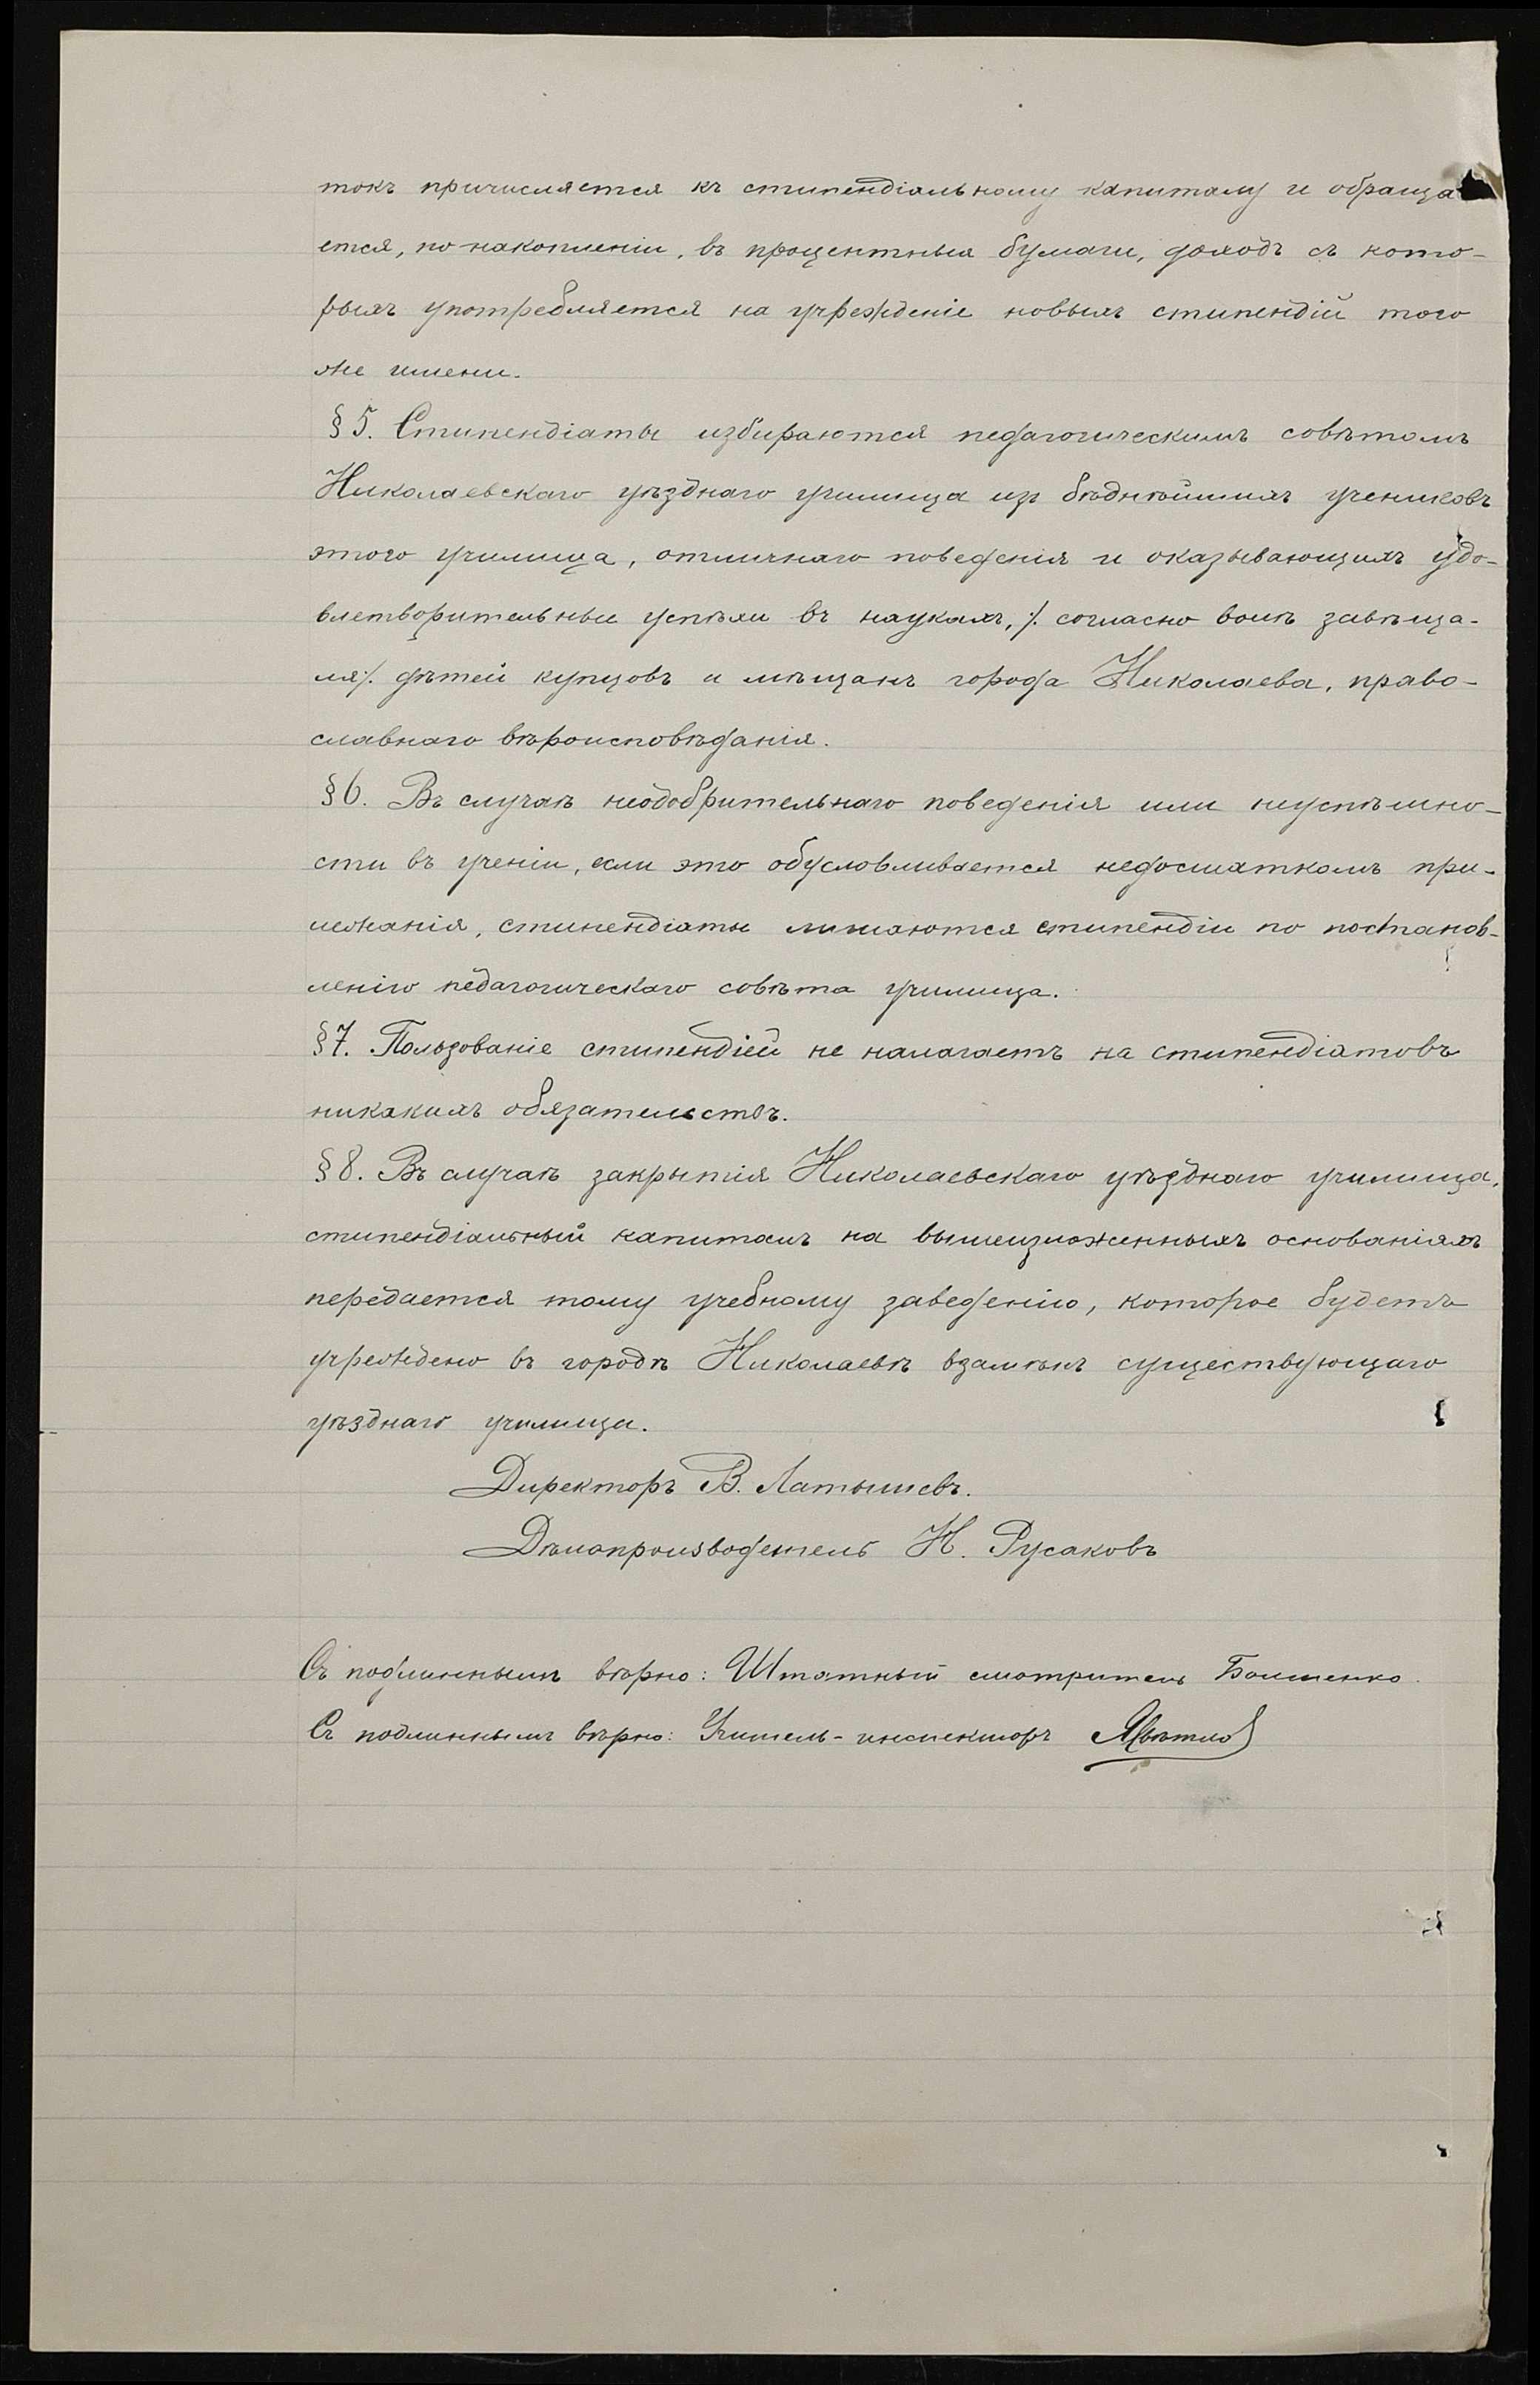 токъ причисляется къ стипендіальному капиталу и обраща
ется, по накопленіи, въ процентныя бумаги, доходъ съ кото-
рыхъ употребляется на учрежденіе новыхъ стипендій того
же имени.
§ 5. Стипендіаты избираются педагогическимъ совѣтомъ
Николаевскаго уѣзднаго училища изъ бѣднѣйшихъ учениковъ
этого училища, отличнаго поведенія и оказывающихъ удо-
влетворительные успѣхи въ наукахъ, ·/. согласно волѣ завѣща-
ля/. дѣтей купцовъ и мѣщанъ города Николаева, право-
славнаго вѣроисповѣданія.
§ 6. Въ случаѣ неодобрительнаго поведенія или неуспѣшно-
сти въ ученіи, если это обусловливается недостаткомъ при-
лежанія, стипендіаты лишаются стипендіи по постанов-
ленію педагогическаго совѣта училища.
§ 7. Пользованіе стипендіей не налагаетъ на стипендіатовъ
никакихъ обязательствъ.
§ 8. Въ случаѣ закрытія Николаевскаго уѣзднаго училища,
стипендіальный капиталъ на вышеизложенныхъ основаніяхъ
передается тому учебному заведенію, которое будетъ
учреждено въ городѣ Николаевѣ взамѣнъ существующаго
уѣзднаго училища.
Директоръ В. Латышевъ.
Дѣлопроизводитель Н. Русаковъ
Съ подлиннымъ вѣрно: Штатный смотритель
Съ подлиннымъ вѣрно: Учитель-инспекторъ